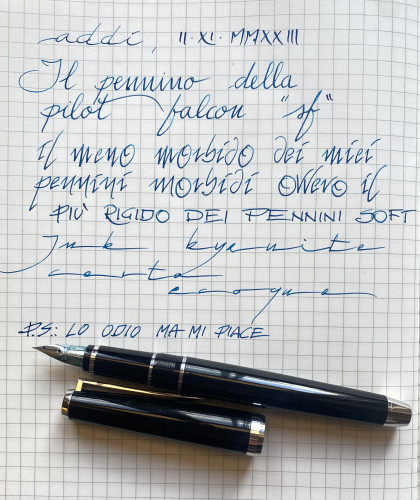 addi, II·XI·MMXXIII
Il pennino della
pilot falcon "sf"
il meno morbido dei miei
pennini morbidi OVVERO il
PIÙ RIGIDO DEI PENNINI SOFT
Ink kyanite
carta
ecoqua
P.S.: LO ODIO MA MI PIACE